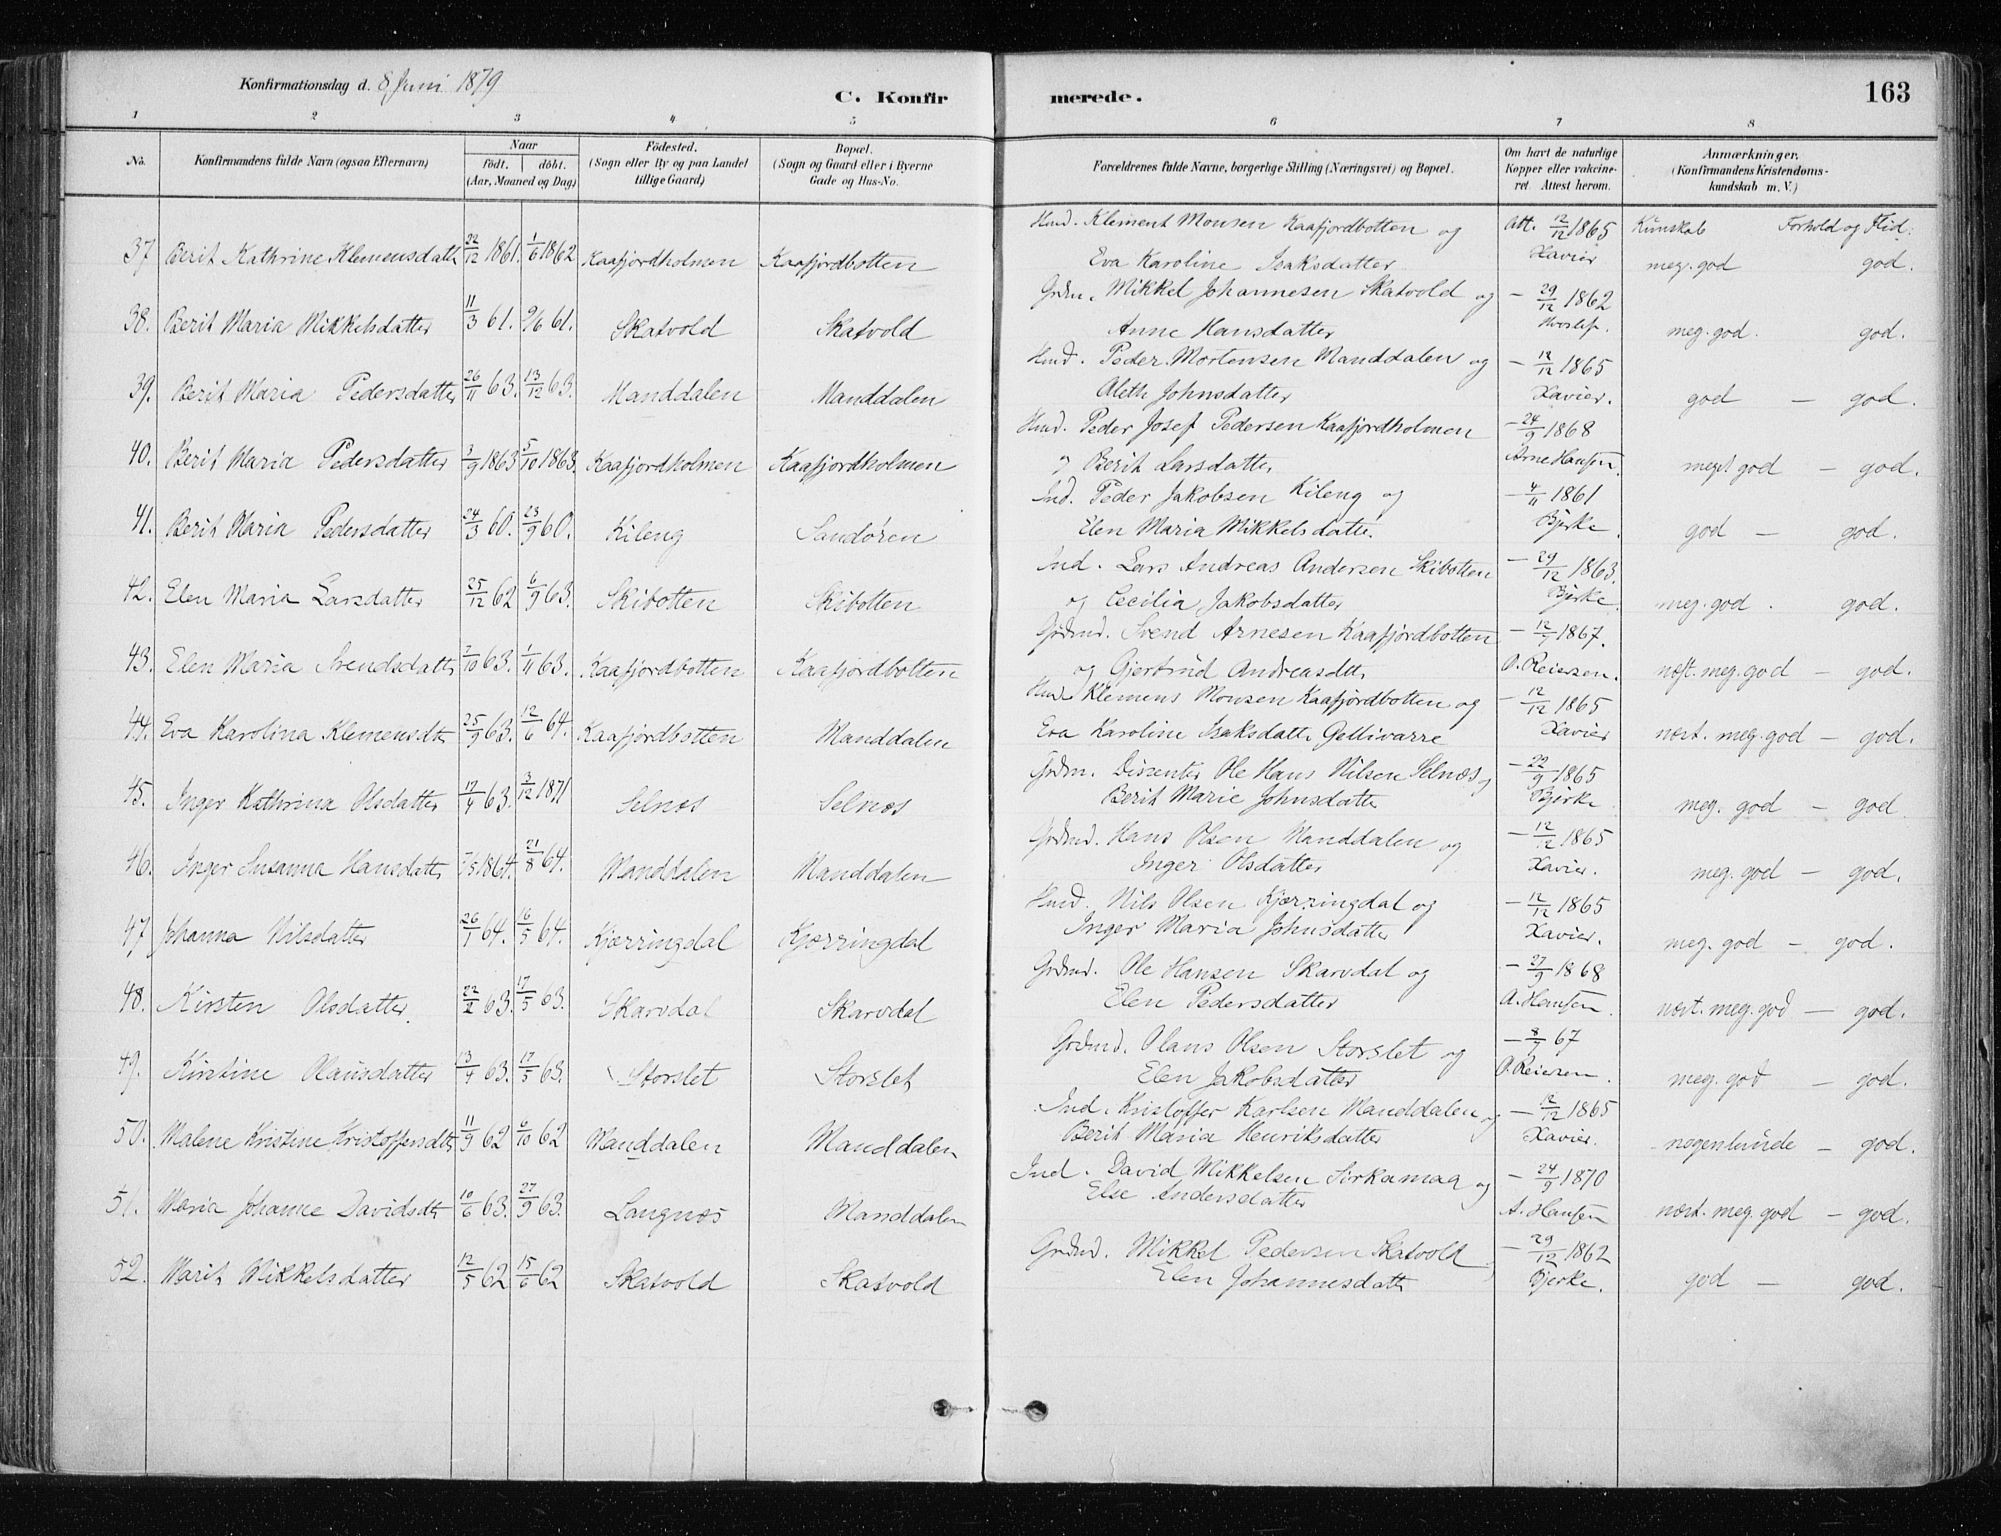 Konfirmationsdag d. 8 Juni 1879
C. Konfirmerede.
163
1 2 3 4 5 6 7 8
No. Konfirmandens fulde Navn (ogsaa Efternavn) Naar födt. döbt. (Aar, Maaned og Dag) Födested. (Sogn eller By og paa Landet tillige Gaard) Bopæl. (Sogn og Gaard eller i Byerne Gade og Hus-No. Forældrenes fulde Navne, borgerlige Stilling (Næringsvei) og Bopæl. Om havt de naturlige Kopper eller vakcineret Attest herom. Anmærkninger. (Konfirmandens Kristendomskundskab m. V.)
Kunskab Forhold og Flid:
37 Berit Kathrine Klemensdatt 22/12 1861. 1/6 1862 Kaafjordholmen Kaafjordbotten Hmd. Klement Monsen Kaafjordbotten og Att. 12/12 1865
Eva Karoline Isaksdatter Xavier meg. god god.
38. Berit Maria Mikkelsdatter 11/3 61. 9/6 61. Skatvold Skatvold Grdm. Mikkel Johannesen Skatvold og – 29/12 1862
Anne Hansdatter meg. god. god.
39. Berit Maria Pedersdatter 26/11 63. 13/12 63. Manddalen Manddalen Hmd. Peder Mortensen Manddalen og – 12/12 1865
Aleth Johnsdatter Xavier. god – god.
40. Berit Maria Pedersdatter 3/9 1863 5/10 1863. Kaafjordholmen Kaafjordholmen Hmd. Peder Josef Pedersen Kaafjordholmen – 24/9 1868
og Berit Larsdatter Arne Hansen. meget god – god.
41. Berit Maria Pedersdatter 24/3 60. 23/9 60. Kileng Sandören Ind. Peder Jakobsen Kileng og – 4/11 1861
Elen Maria Mikkelsdatte. Bjerke god – god.
42. Elen Maria Larsdatter 25/12 62 6/9 63. Skibotten Skibotten Ind. Lars Andreas Andersen Skibotten – 29/12 1863.
og Cecilia Jakobsdatter Bjerke meg. god. god.
43. Elen Maria Svendsdatt 7/10 63. 1/11 63. Kaafjordbotten Kaafjordbotten Grdmd. Svend Arnesen Kaafjordbotten – 12/9 1867.
og Gjertrud Andreasdtt. O. Reiersen. næst. meg. god – god.
44. Eva Karolina Klemensdtr 25/9 63. 12/6 64. Kaafjordbotten Manddalen Hmd Klemens Monsen Kaafjordbotten og – 12/12 1865
Eva Karoline Isaksdatt. Gellivarre Xavier næst. meg. god – god.
45. Inger Kathrina Olsdatter 17/4 63. 3/12 1871 Selnæs Selnæs Grdm. Dissenter Ole Hans Nilsen Selnæs og – 22/9 1865
Berit Marie Johnsdatter Bjerke meg. god – god
46. Inger Susanna Hansdatt 7/5 1864. 21/8 64. Manddalen Manddalen Grdmd. Hans Olsen Manddalen og – 12/12 1865
Inger Olsdatter Xavier. meg. god – god.
47. Johanna Nilsdatter 26/1 64. 16/5 64. Kjærringdal Kjærringdal Hmd. Nils Olsen Kjærringdal og – 12/12 1865
Inger Maria Johnsdatter Xavier. meg. god – god.
48. Kirsten Olsdatter. 22/2 63. 17/5 63. Skarvdal Skarvdal Grdmd. Ole Hansen Skarvdal og – 27/9 1868
Elen Pedersdatter A. Hansen. næst. meg. god – god.
49. Kirstine Olausdatter 13/4 63. 17/5 63. Storslet Storslet Grdmd. Olaus Olsen Storslet og – 8/7 67
Elen Jakobsdatter O. Reiersen. meg. god – god.
50. Malene Kristine Kristoffersdtr 11/9 62 6/10 62 Manddalen Manddalen Ind. Kristoffer Karlsen Manddalen og – 12/12 1865
Berit Maria Henriksdatter Xavier. nogenlunde – god.
51. Maria Johanne Davidsdtr 10/6 63. 27/9 63. Langnæs Manddalen Ind. David Mikkelsen Sirkamaa og – 24/9 1870
Else Andersdatter A. Hansen næst. meg. god – god.
52. Marit Mikkelsdatter 12/5 62 15/6 62 Skatvold Skatvold Grdmd. Mikkel Pedersen Skatvold – 29/12 1862
Elen Johannesdatt Bjerke. god – god.